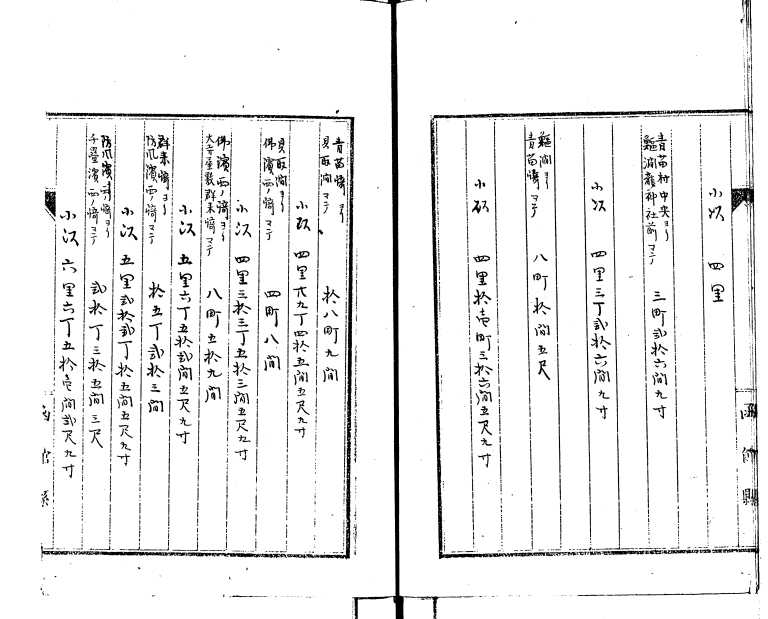 小以　四里
青苗村中央ヨリ
澗嶽神社前マテ　三町弐拾六間九寸
小以　四里三丁弐拾六間九寸
澗ヨリ
青苗崎マテ　八町拾間五尺
小以　四里拾壱町三拾六間五尺九寸
函館縣
青苗崎ヨリ
貝取澗マテ　拾八町九間
小以　四里廿九丁四拾五間五尺九寸
貝取澗ヨリ
佛濱西ノ崎マテ　四町八間
小以　四里三拾三丁五拾三間五尺九寸
佛濱西ノ崎ヨリ
大寺屋敷群来崎マテ　八町五拾九間
小以　五里六丁五拾弐間五尺九寸
群来崎ヨリ
防風濱西ノ崎マテ　拾五丁弐拾三間
小以　五里弐拾弐丁拾五間五尺九寸
防風濱西ノ崎ヨリ
千畳濱西ノ崎マテ　弐拾丁三拾五間三尺
小以　六里六丁五拾壱間弐尺九寸
函館縣